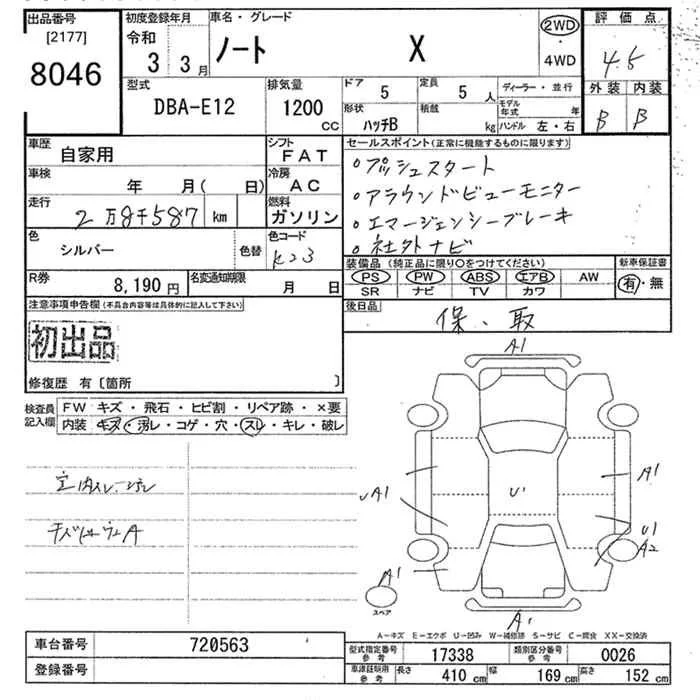 出品番号
[2177]
8046
初度登録年月
令和
3 3月
車名・グレード
ノート X
2WD
・
4WD
評価点
4.5
外装 内装
B B
型式
DBA-E12
排気量
1200
CC
ドア
5
定員
5 人
形状
ハッチB
積載
kg
ディーラー・並行
モデル年式 年
ハンドル 左・右
車歴
自家用
シフト
FAT
車検
年 月( 日)
冷房
AC
走行
2万8千587 km
燃料
ガソリン
色
シルバー
色替
色コード
K23
R券
8,190 円
名変通知期限
月 日
セールスポイント(正常に機能するものに限ります)
・プッシュスタート
・アラウンドビューモニター
・エマージェンシーブレーキ
・社外ナビ
装備品(純正品に限り○をつけてください)
新車保証書
PS PW ABS エアB AW
SR ナビ TV カワ
有・無
後日品
保、取
注意事項申告欄(不具合内容等は具体的に記入して下さい)
初出品
修復歴 有〔箇所 〕
検査員
記入欄
FW キズ・飛石・ヒビ割・リペア跡・×要
内装 キズ・汚レ・コゲ・穴・スレ・キレ・破レ
A1
A1
A1
U1
U1
A2
A1
A1
スペア
A－キズ E－エクボ U－凹み W－補修跡 S－サビ C－腐食 XX－交換済
車台番号
720563
登録番号
型式指定番号
参考
17338
類別区分番号
参考
0026
車庫証明用
参考
長さ
410 cm
幅
169 cm
高さ
152 cm